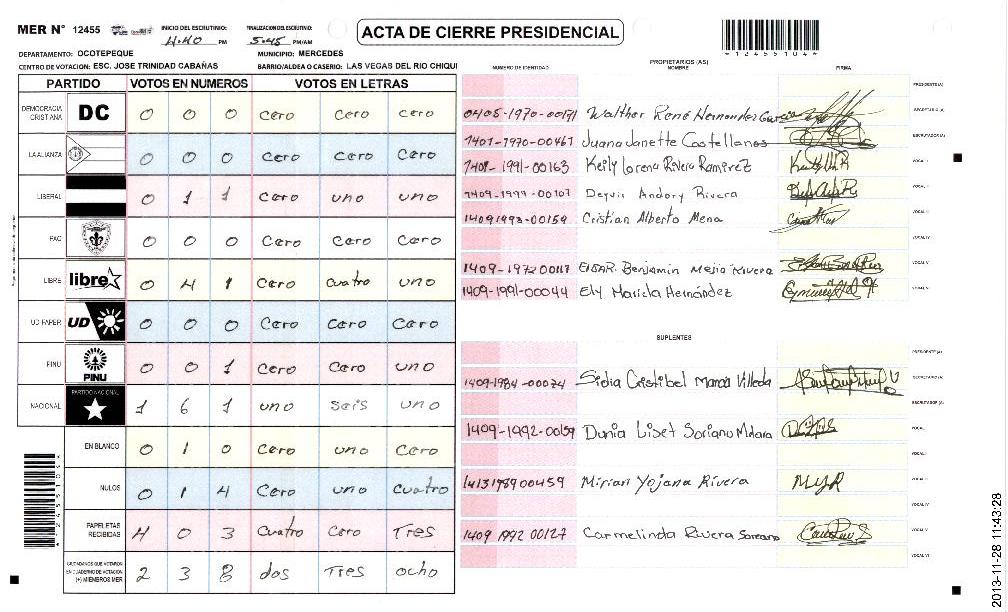 MER N° 12455 INICIO DEL ESCRUTINIO: 4:40 PM FINALIZACION DEL ESCRUTINIO: 5:45 PM/AM
ACTA DE CIERRE PRESIDENCIAL
DEPARTAMENTO: OCOTEPEQUE MUNICIPIO: MERCEDES
CENTRO DE VOTACION: ESC. JOSE TRINIDAD CABAÑAS BARRIO/ALDEA O CASERIO: LAS VEGAS DEL RIO CHIQUI
PARTIDO VOTOS EN NUMEROS VOTOS EN LETRAS
DEMOCRACIA CRISTIANA DC 0 0 0 cero cero cero
LA ALIANZA 0 0 0 cero cero cero
LIBERAL 0 1 1 cero uno uno
PAC 0 0 0 cero cero cero
LIBRE libre 0 4 1 cero cuatro uno
UD FAPER UD 0 0 0 cero cero cero
PINU PINU 0 0 1 cero cero uno
NACIONAL PARTIDO NACIONAL 1 6 1 uno seis uno
EN BLANCO 0 1 0 cero uno cero
NULOS 0 1 4 cero uno cuatro
PAPELETAS RECIBIDAS 4 0 3 cuatro cero Tres
CIUDADANOS QUE VOTARON
EN CUADERNO DE VOTACION
(+) MIEMBROS MER
2 3 8 dos Tres ocho
PROPIETARIOS (AS)
NUMERO DE IDENTIDAD NOMBRE FIRMA
PRESIDENTE (A)
0405-1970-00171 Walther René Hernandez Garcia
SECRETARIO (A)
1401-1970-00467 Juana Janette Castellanos
ESCRUTADOR (A)
1401-1991-00163 Keily Lorena Rivera Ramirez
VOCAL I
1409-1999-00107 Deyvis Andory Rivera
VOCAL II
14091993-00159 Cristian Alberto Mena
VOCAL III
VOCAL IV
1409-1972 00117 EDGAR. Benjamin Mejia Rivera
VOCAL V
1409-1991-00044 Ely Mariela Hernández
VOCAL VI
SUPLENTES
PRESIDENTE (A)
1409-1984-00074 Sidia Cristibel Marcia Villeda
SECRETARIO (A)
ESCRUTADOR (A)
1409-1992-00159 Dunia Liset Soriano
VOCAL I
VOCAL II
1413198900459 Mirian Yojana Rivera MYR
VOCAL III
VOCAL IV
1409 1992 00127 Carmelinda Rivera Soreano
VOCAL V
VOCAL VI
2013-11-28 11:43:28